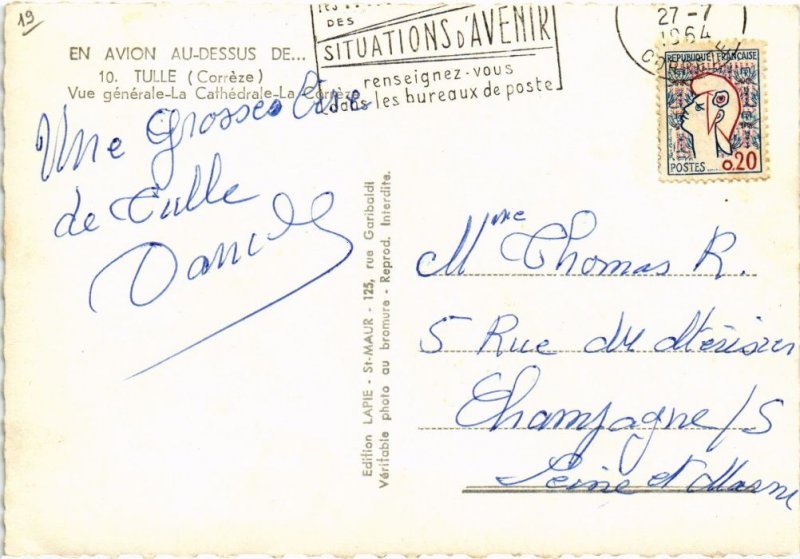 19
EN AVION AU-DESSUS DE...
10. TULLE (Corrèze)
Vue générale-La Cathédrale-La Corrèze
DES
SITUATIONS D'AVENIR
renseignez-vous
dans les bureaux de poste
27-7
1964
CORREZE
REPUBLIQUE FRANÇAISE
POSTES 0,20
Une Grosse Bise
de Tulle
Edition LAPIE - St-MAUR - 125, rue Garibaldi
Véritable photo au bromure - Reprod. Interdite.
Mme Thomas R.
5 Rue du Mérisier
Champagne/S
Seine et Marne